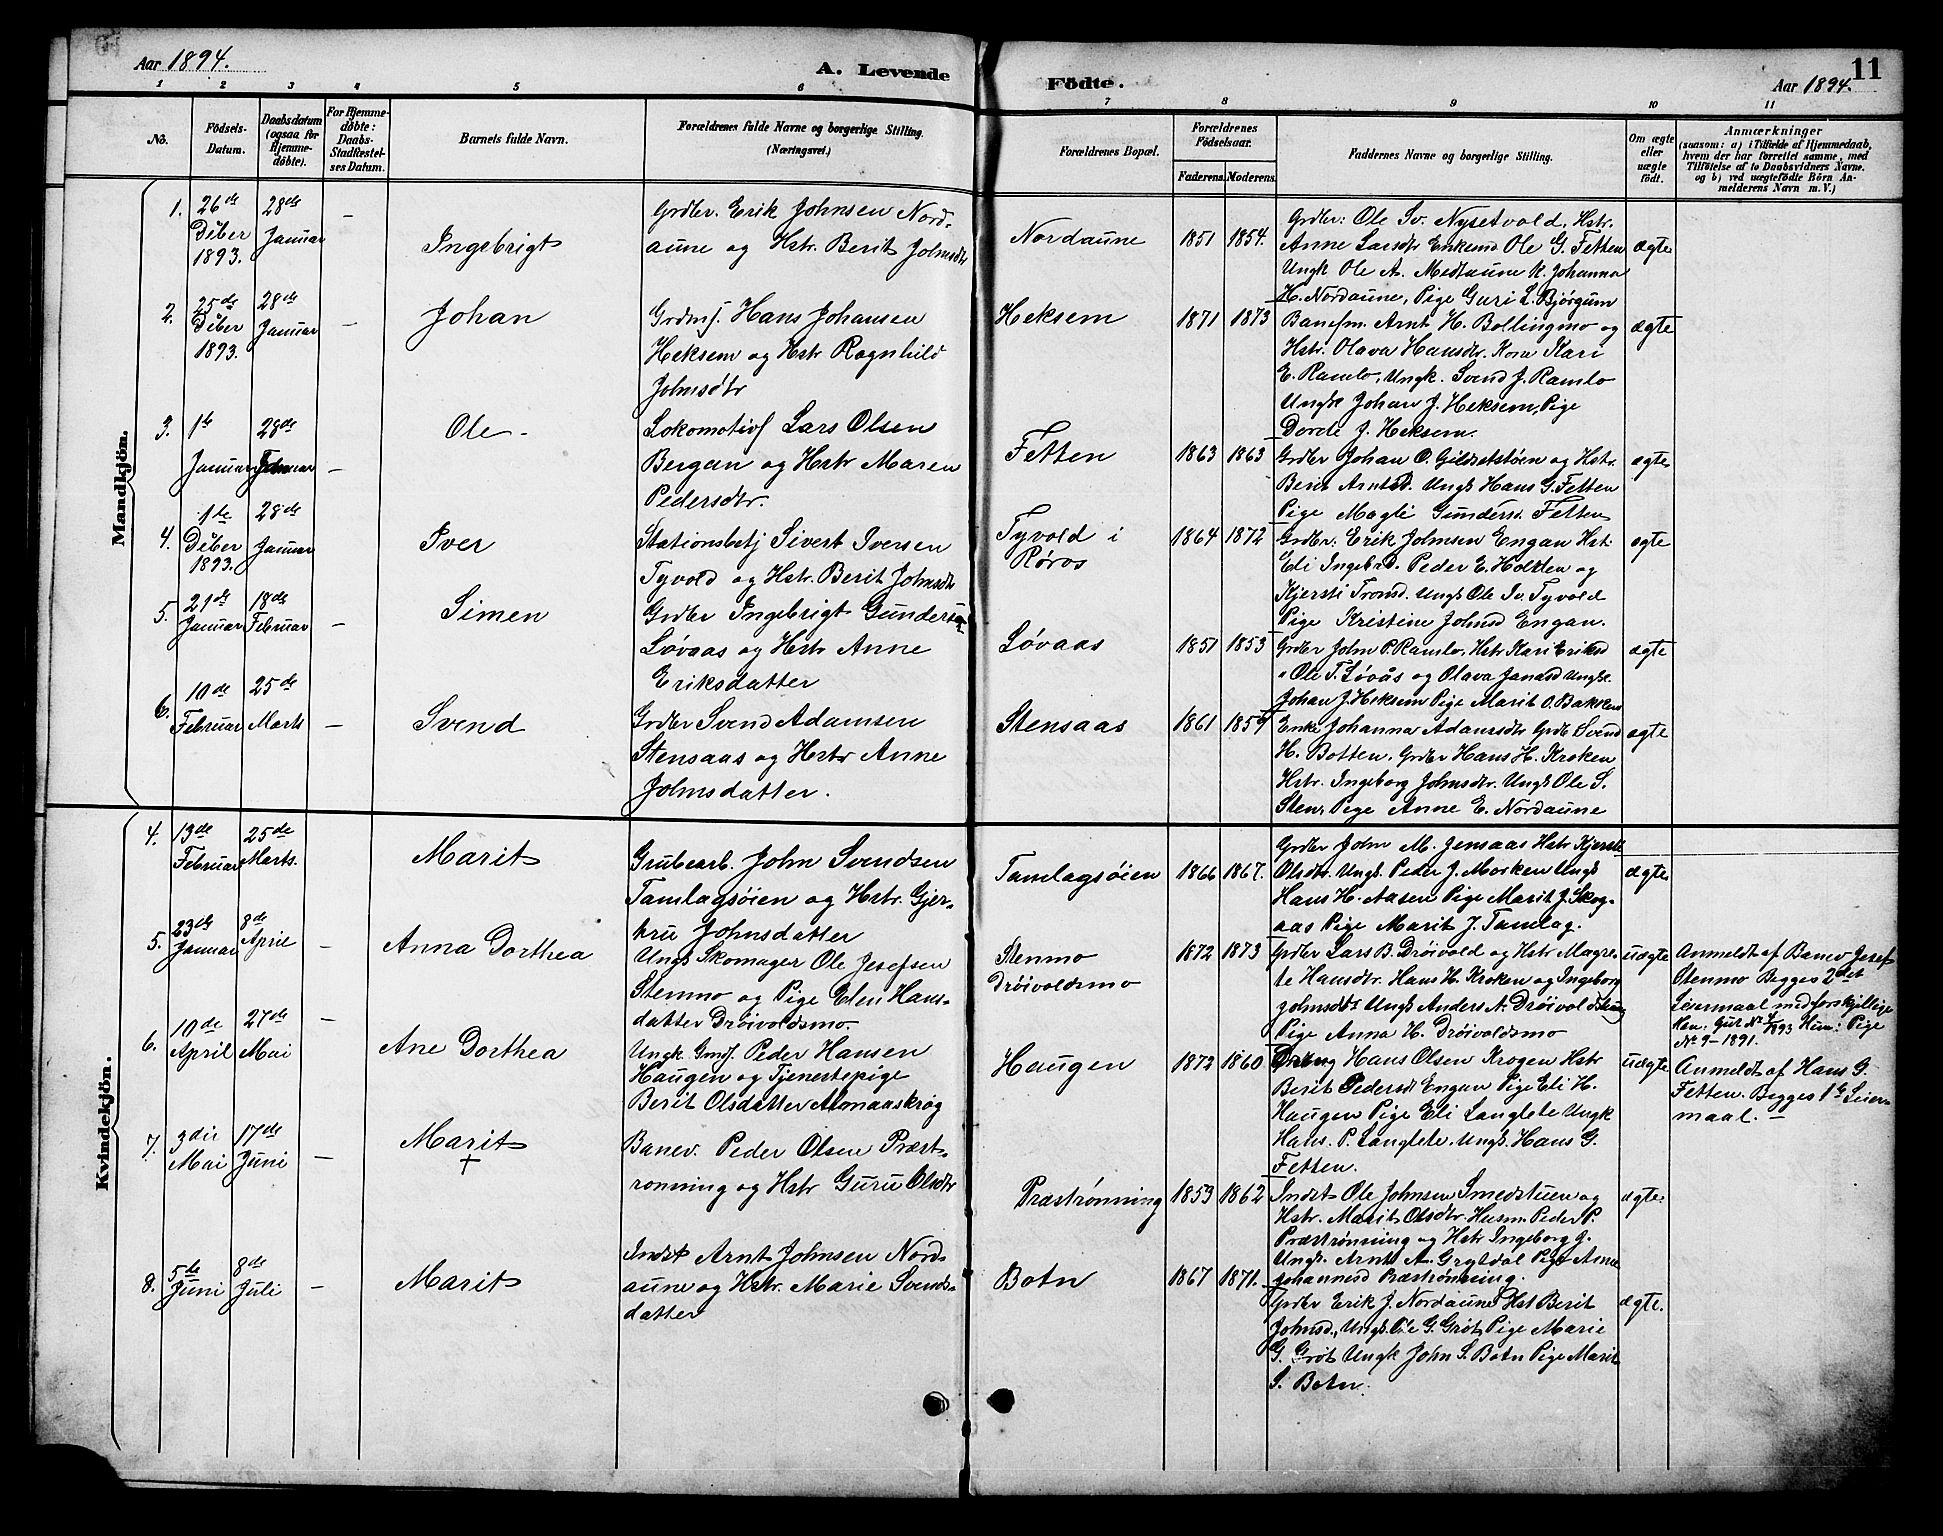 Aar 1894.
A. Levende
Födte.
11
Aar 1894.
1 2 3 4 5 6 7 8 9 10 11
No.
Födsels-
Datum.
Daabsdatum
(ogsaa for
Hjemme-
döbte).
For Hjemme-
döbte:
Daabs-
Stadfæstel-
ses Datum.
Barnets fulde Navn.
Forældrenes fulde Navne og borgerlige Stilling.
(Næringsvei.)
Forældrenes Bopæl.
Forældrenes
Födselsaar.
Faderens. Moderens.
Faddernes Navne og borgerlige Stilling.
Om ægte
eller
uægte
födt.
Anmærkninger
(saasom: a) i Tilfælde af Hjemmedaab,
hvem der har forrettet samme, med
Tilföielse af to Daabsvidners Navne.
og b) ved uægtefödte Börn An-
melderens Navn m. V.)
Mandkjön.
1.
26de
Dëber
1893.
28de
Januar
–
Ingebrigt
Grdbr. Erik Johnsen Nord-
aune og Hstr. Berit Johnsdtr
Nordaune
1851 1854.
Grdbr: Ole Sv. Nysetvold, Hstr.
Anne Larsdtr Enkemd Ole G. Fetten
Ungk Ole A. Medtaune K. Johanna
H. Nordaune, Pige Guri L. Bjørgum
ægte
2.
25de
Dëber
1893.
28de
Januar
–
Johan
Grdmf. Hans Johansen
Heksem og Hstr Ragnhild
Johnsdtr
Heksem
1871 1873
Banefm. Arnt H. Bollingmo og
Hstr. Olava Hansdtr. Kona Kari
E. Ramlo, Ungk. Svend J. Ramlo
Ungk Johan J. Heksem, Pige
Dorde J. Heksem.
ægte
3.
1te
Januar
28de
Januar
–
Ole -
Lokomotivf Lars Olsen
Bergan og Hstr Maren
Pedersdtr.
Fetten
1863 1863
Grdbr Johan O. Gildsetstøen og Hstr.
Berit Arntsd. Ungk Hans G. Fetten
Pige Magli Gundersd. Fetten
ægte
4.
1de
Dëber
1893.
28de
Januar
Iver
Stationsbetj Sivert Iversen
Tyvold og Hstr. Berit Johnsdtr
Tyvold i
Røros
1864 1872
Grdbr. Erik Johnsen Engan Hst.
Eli Ingebrd. Peder E. Holden og
Kjersti Tromsd. Ungk Ole Sv. Tyvold
Pige Kristine Johnsd Engan.
ægte
5.
21de
Januar
18de
Februar
–
Simen
Grdbr Ingebrigt Gundersen
Løvaas og Hstr Anne
Eriksdatter
Løvaas
1851 1853
Grdbr John P. Ramlo, Hstr Kari Eriksd
" Ole T. Løvås og Olava Jonasd Ungk.
Johan J. Heksem Pige Marit O. Bakken
ægte
6.
10de
Februar
25de
Marts
–
Svend
Grdbr Svend Adamsen
Stensaas og Hstr Anne
Johnsdatter.
Stensaas
1861 1859
Enke Johanna Adamsdtr Grdb Svend
H. Botten, Grdbr Hans H. Kroken
Hstr. Ingeborg Johnsdtr. Ungk Ole S.
Sten, Pige Anne E. Nordaune
ægte
Kvindekjön.
4.
13de
Februar
25de
Marts.
Marit
Grubearb. John Svendsen
Tamlagsøien og Hstr. Gjer-
tru Johnsdatter
Tamlagsøien
1866 1867.
Grdbr John M. Jensaas Hstr Kjersti
Olsdtr. Ungk Peder J. Morken Ungk
Hans H. Aasen Pige Marit J. Skog-
aas Pige Marit J. Tamlag.
ægte
5.
23de
Januar
8de
April
–
Anna Dorthea
Ungk Skomager Ole Josefsen
Stenmo og Pige Elen Hans-
datter Drøivoldsmo.
Stenmo
Drøivoldsmo
1872 1873
Grdbr Lars B. Drøivold og Hstr Magre-
te Hansdtr. Hans H. Kroken og Ingeborg
Johnsdtr Ungk Anders A. Drøivoldstung
Pige Anna H. Drøivoldsmo
uægte
Anmeldt af Banev Josef
Stenmo Begges 2det
Leiermaal med forskjellige
Han: Gut No 4/1893 Hun: Pige
No 9 – 1891.
6.
10de
April
27de
Mai
–
Ane Dorthea
Ungk Gmdf. Peder Hansen
Haugen og Tjenestepige
Berit Olsdatter Almaaskrog
Haugen
1872 1860
Hans Olsen Krogen Hstr
Berit Pedersd Engan Pige Eli H.
Haugen Pige Eli Langlete Ungk
Hans. P. Langlete. Ungk. Hans G.
Fetten.
uægte
Anmeldt af Hans G.
Fetten. Begges 1te Leier-
maal. –
7.
3die
Mai
17de
Juni
–
Marit
†
Banev. Peder Olsen Præst-
rønning og Hstr Guru Olsdtr
Præstrønning
1853 1862
Indst Ole Johnsen Smedstuen og
Hstr. Marit Olsdtr. Husm. Peder P.
Præstrønning og Hstr Ingeborg G.
Ungk. Arnt A. Grytdal Pige Anne
Johannesd Præstrønning.
ægte
8.
5de
Juni
8de
Juli
–
Marit
Indst Arnt Johnsen Nord-
aune og Hstr. Marie Svends-
datter
Botn
1867 1871.
Grdbr Erik J. Nordaune Hst Berit
Johnsd., Ungk. Ole G. Grøt, Pige Marie
G. Grøt Ungk John S. Botn Pige Marit
S. Botn.
ægte.